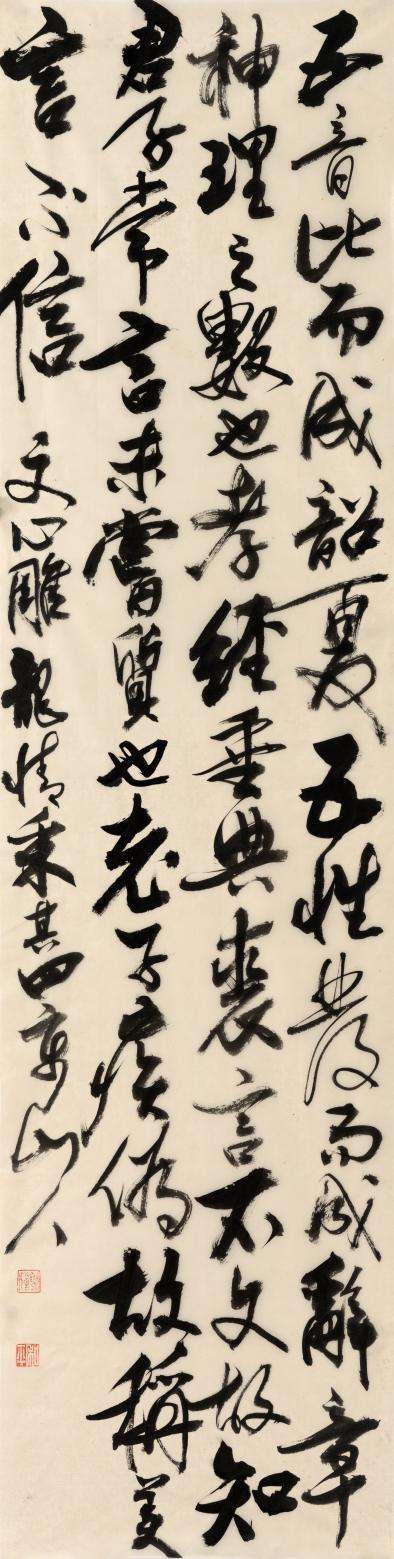 五音比而成韶夏五性發而成辭章
神理之數也孝經垂典喪言不文故知
君子常言未嘗質也老子疾偽故稱美
言不信 文心雕龍情采其四 山人